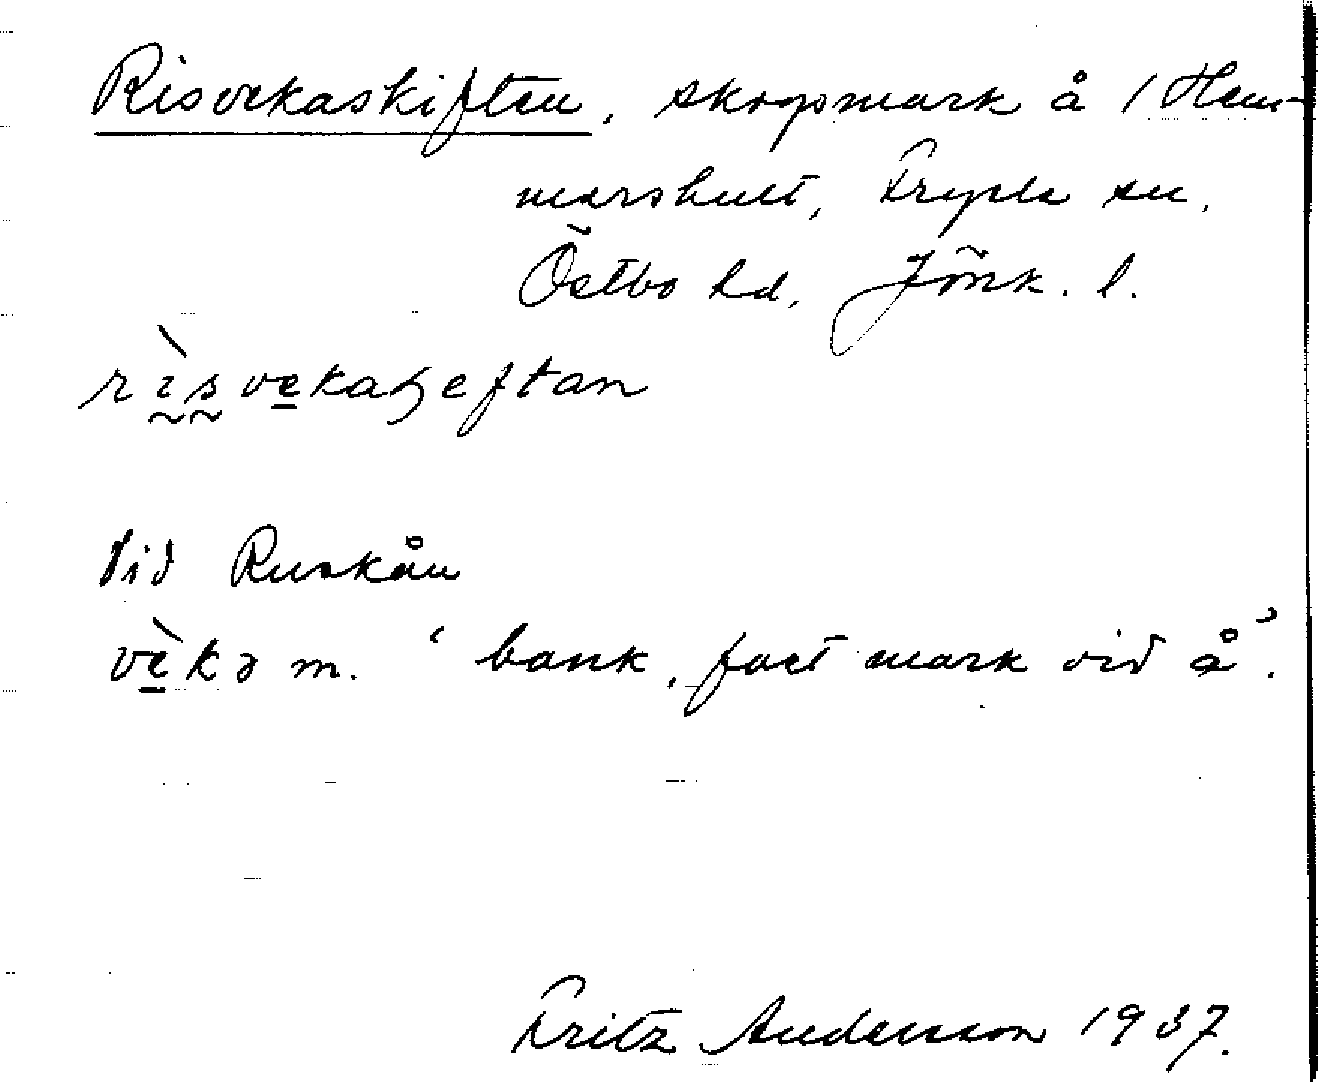 Risvekaskiften, skogsmark å / Hem-
marshult, Fryele sn,
Östbo hd, Jönk. l.
rìsvekaꜧeftan
Vid Ruskån
vèkə m. ‘bank, fast mark vid å’.
Fritz Andersson 1937.